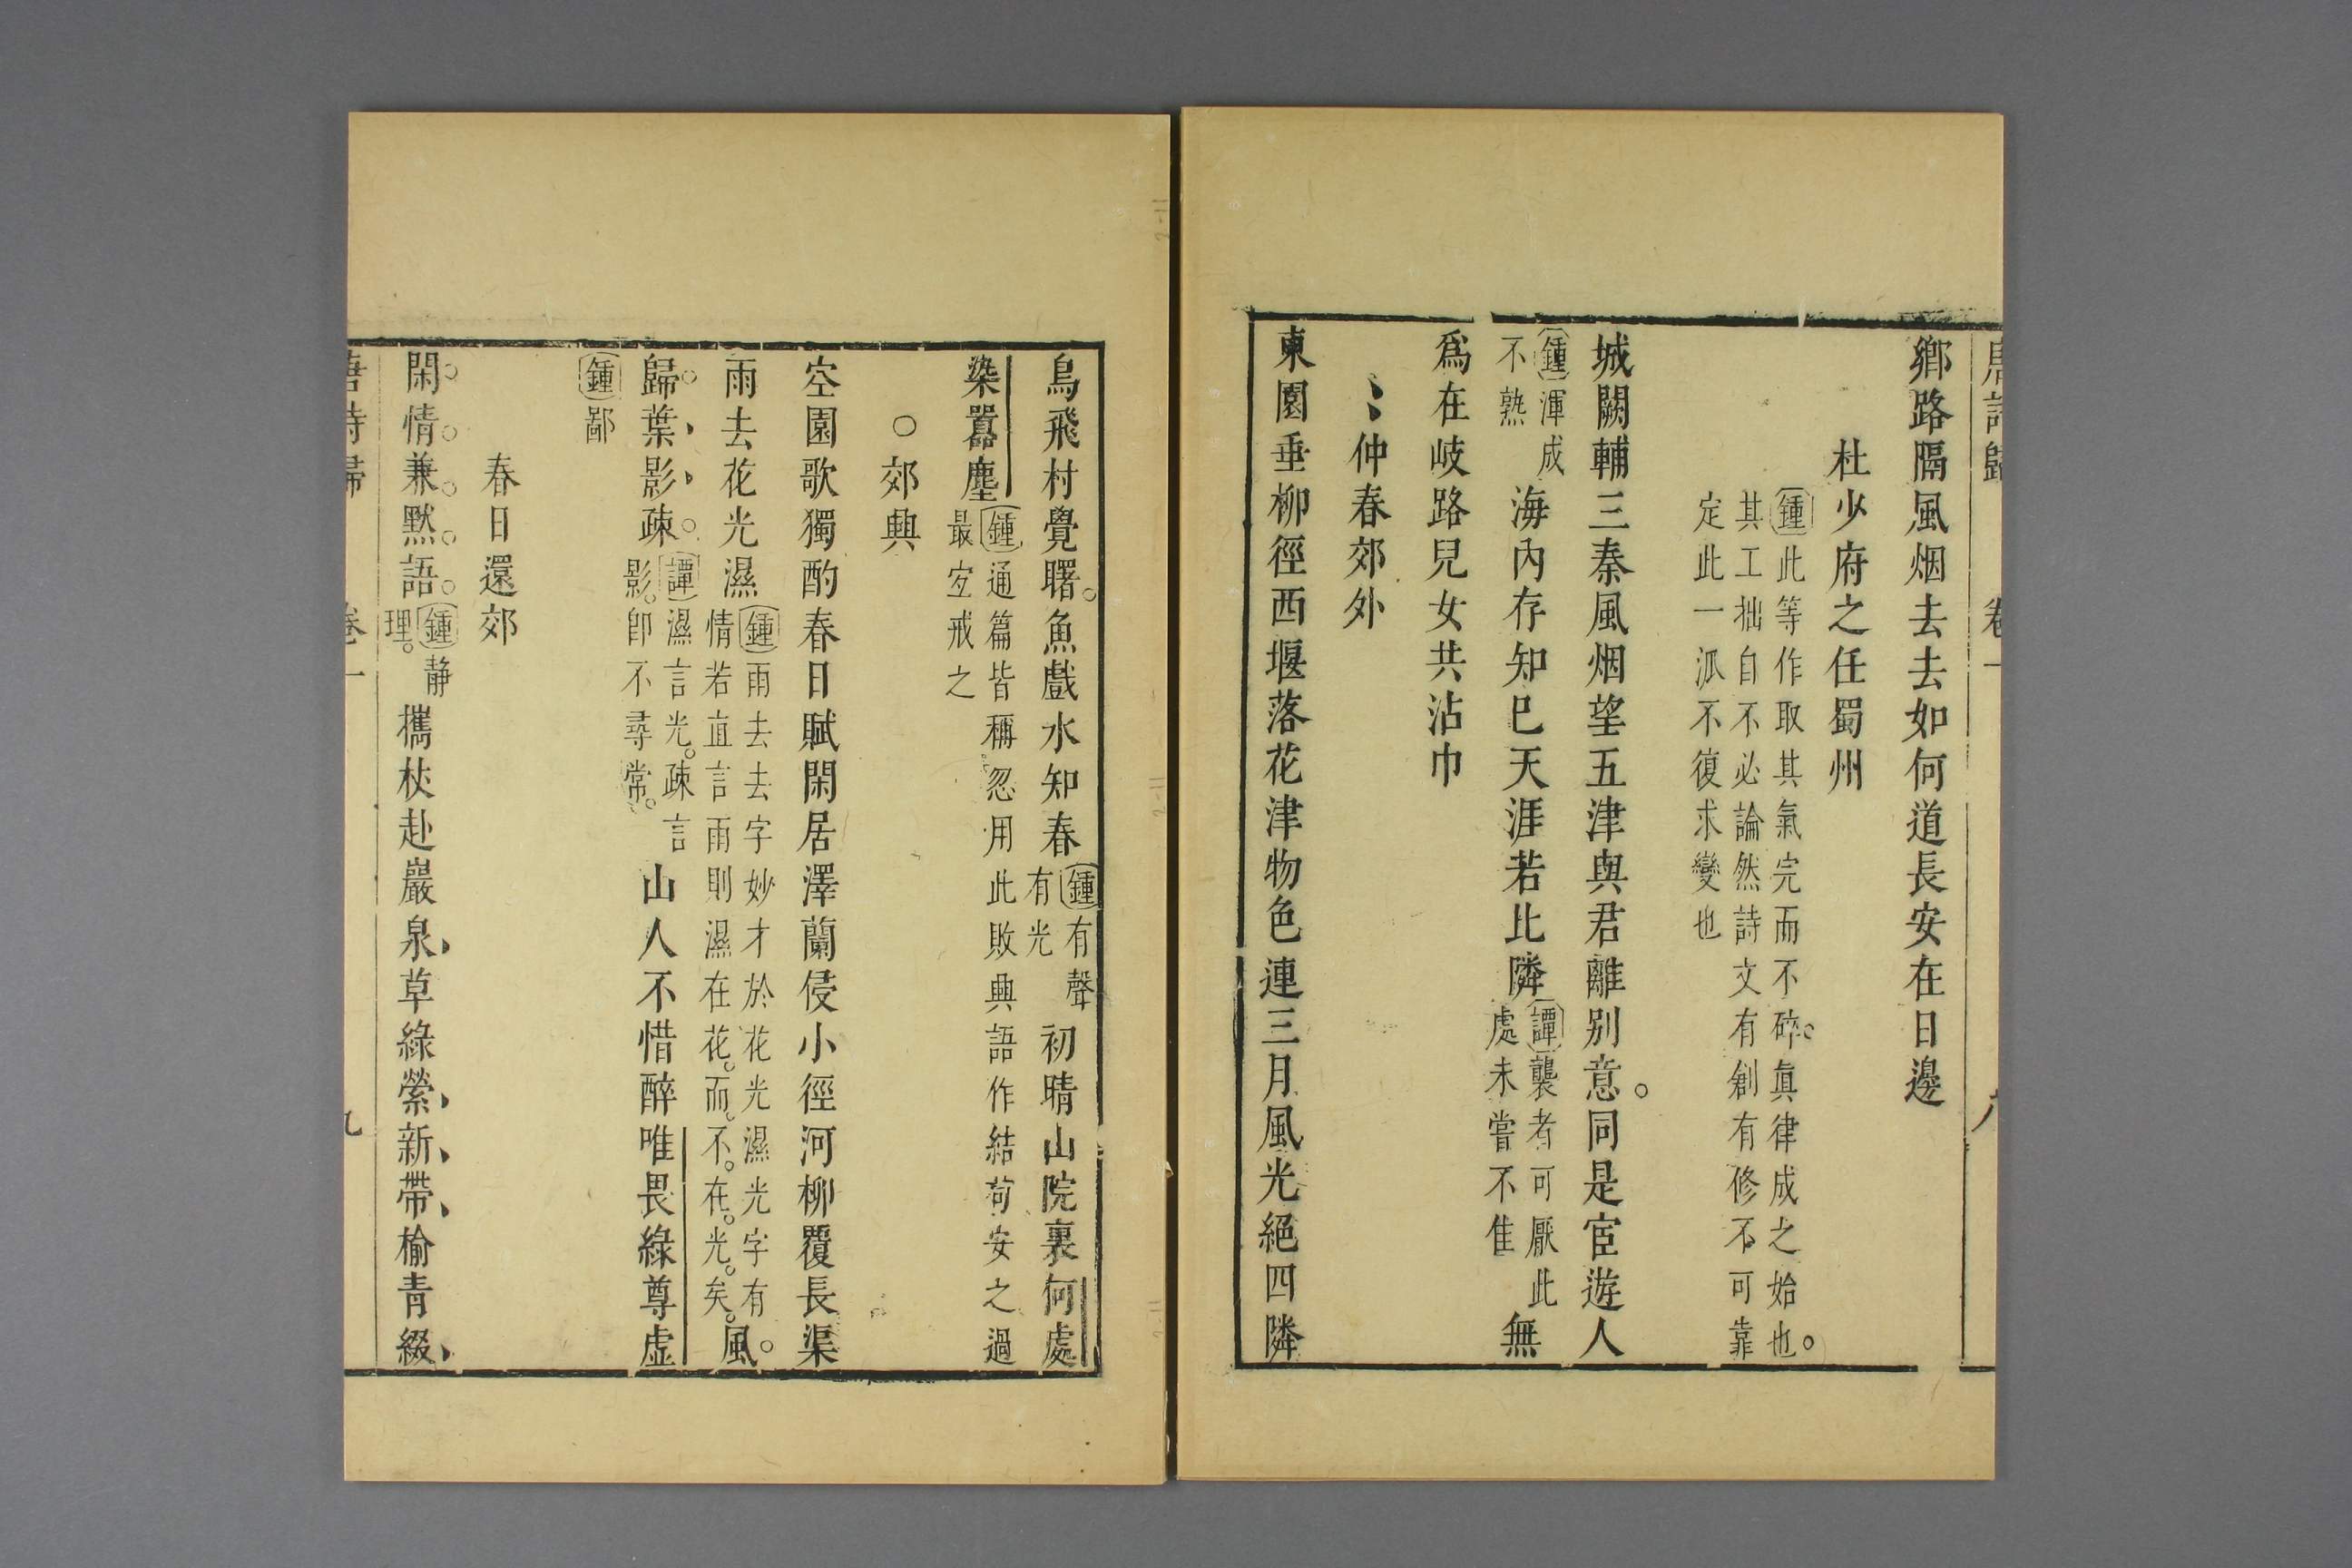 唐詩歸 卷一 八
鄉路隔風烟去去如何道長安在日邊
杜少府之任蜀州
鍾此等作取其氣完而不碎真律成之始也
其工拙自不必論然詩文有創有修不可靠
定此一派不復求變也
城闕輔三秦風烟望五津與君離别意同是宦遊人
鍾渾成
不熟
海內存知已天涯若比隣
譚襲者可厭此
處未嘗不佳
無
爲在岐路兒女共沾巾
仲春郊外
東園垂柳徑西堰落花津物色連三月風光絕四隣
鳥飛村覺曙魚戲水知春
鍾有聲
有光
初晴山院裏何處
染囂塵
鍾通篇皆稱忽用此敗興語作結苟安之過
最宐戒之
○郊興
空園歌獨酌春日賦閑居澤蘭侵小徑河柳覆長渠
雨去花光濕
鍾雨去去字妙才於花光濕光字有
情若直言雨則濕在花而不在光矣
風
歸葉影疎
譚濕言光疎言
影卽不尋常
山人不惜醉唯畏綠尊虛
鍾鄙
春日還郊
閑情兼默語
鍾静
理
攜杖赴巖泉草綠縈新帶榆青綴
唐詩歸 卷一 九